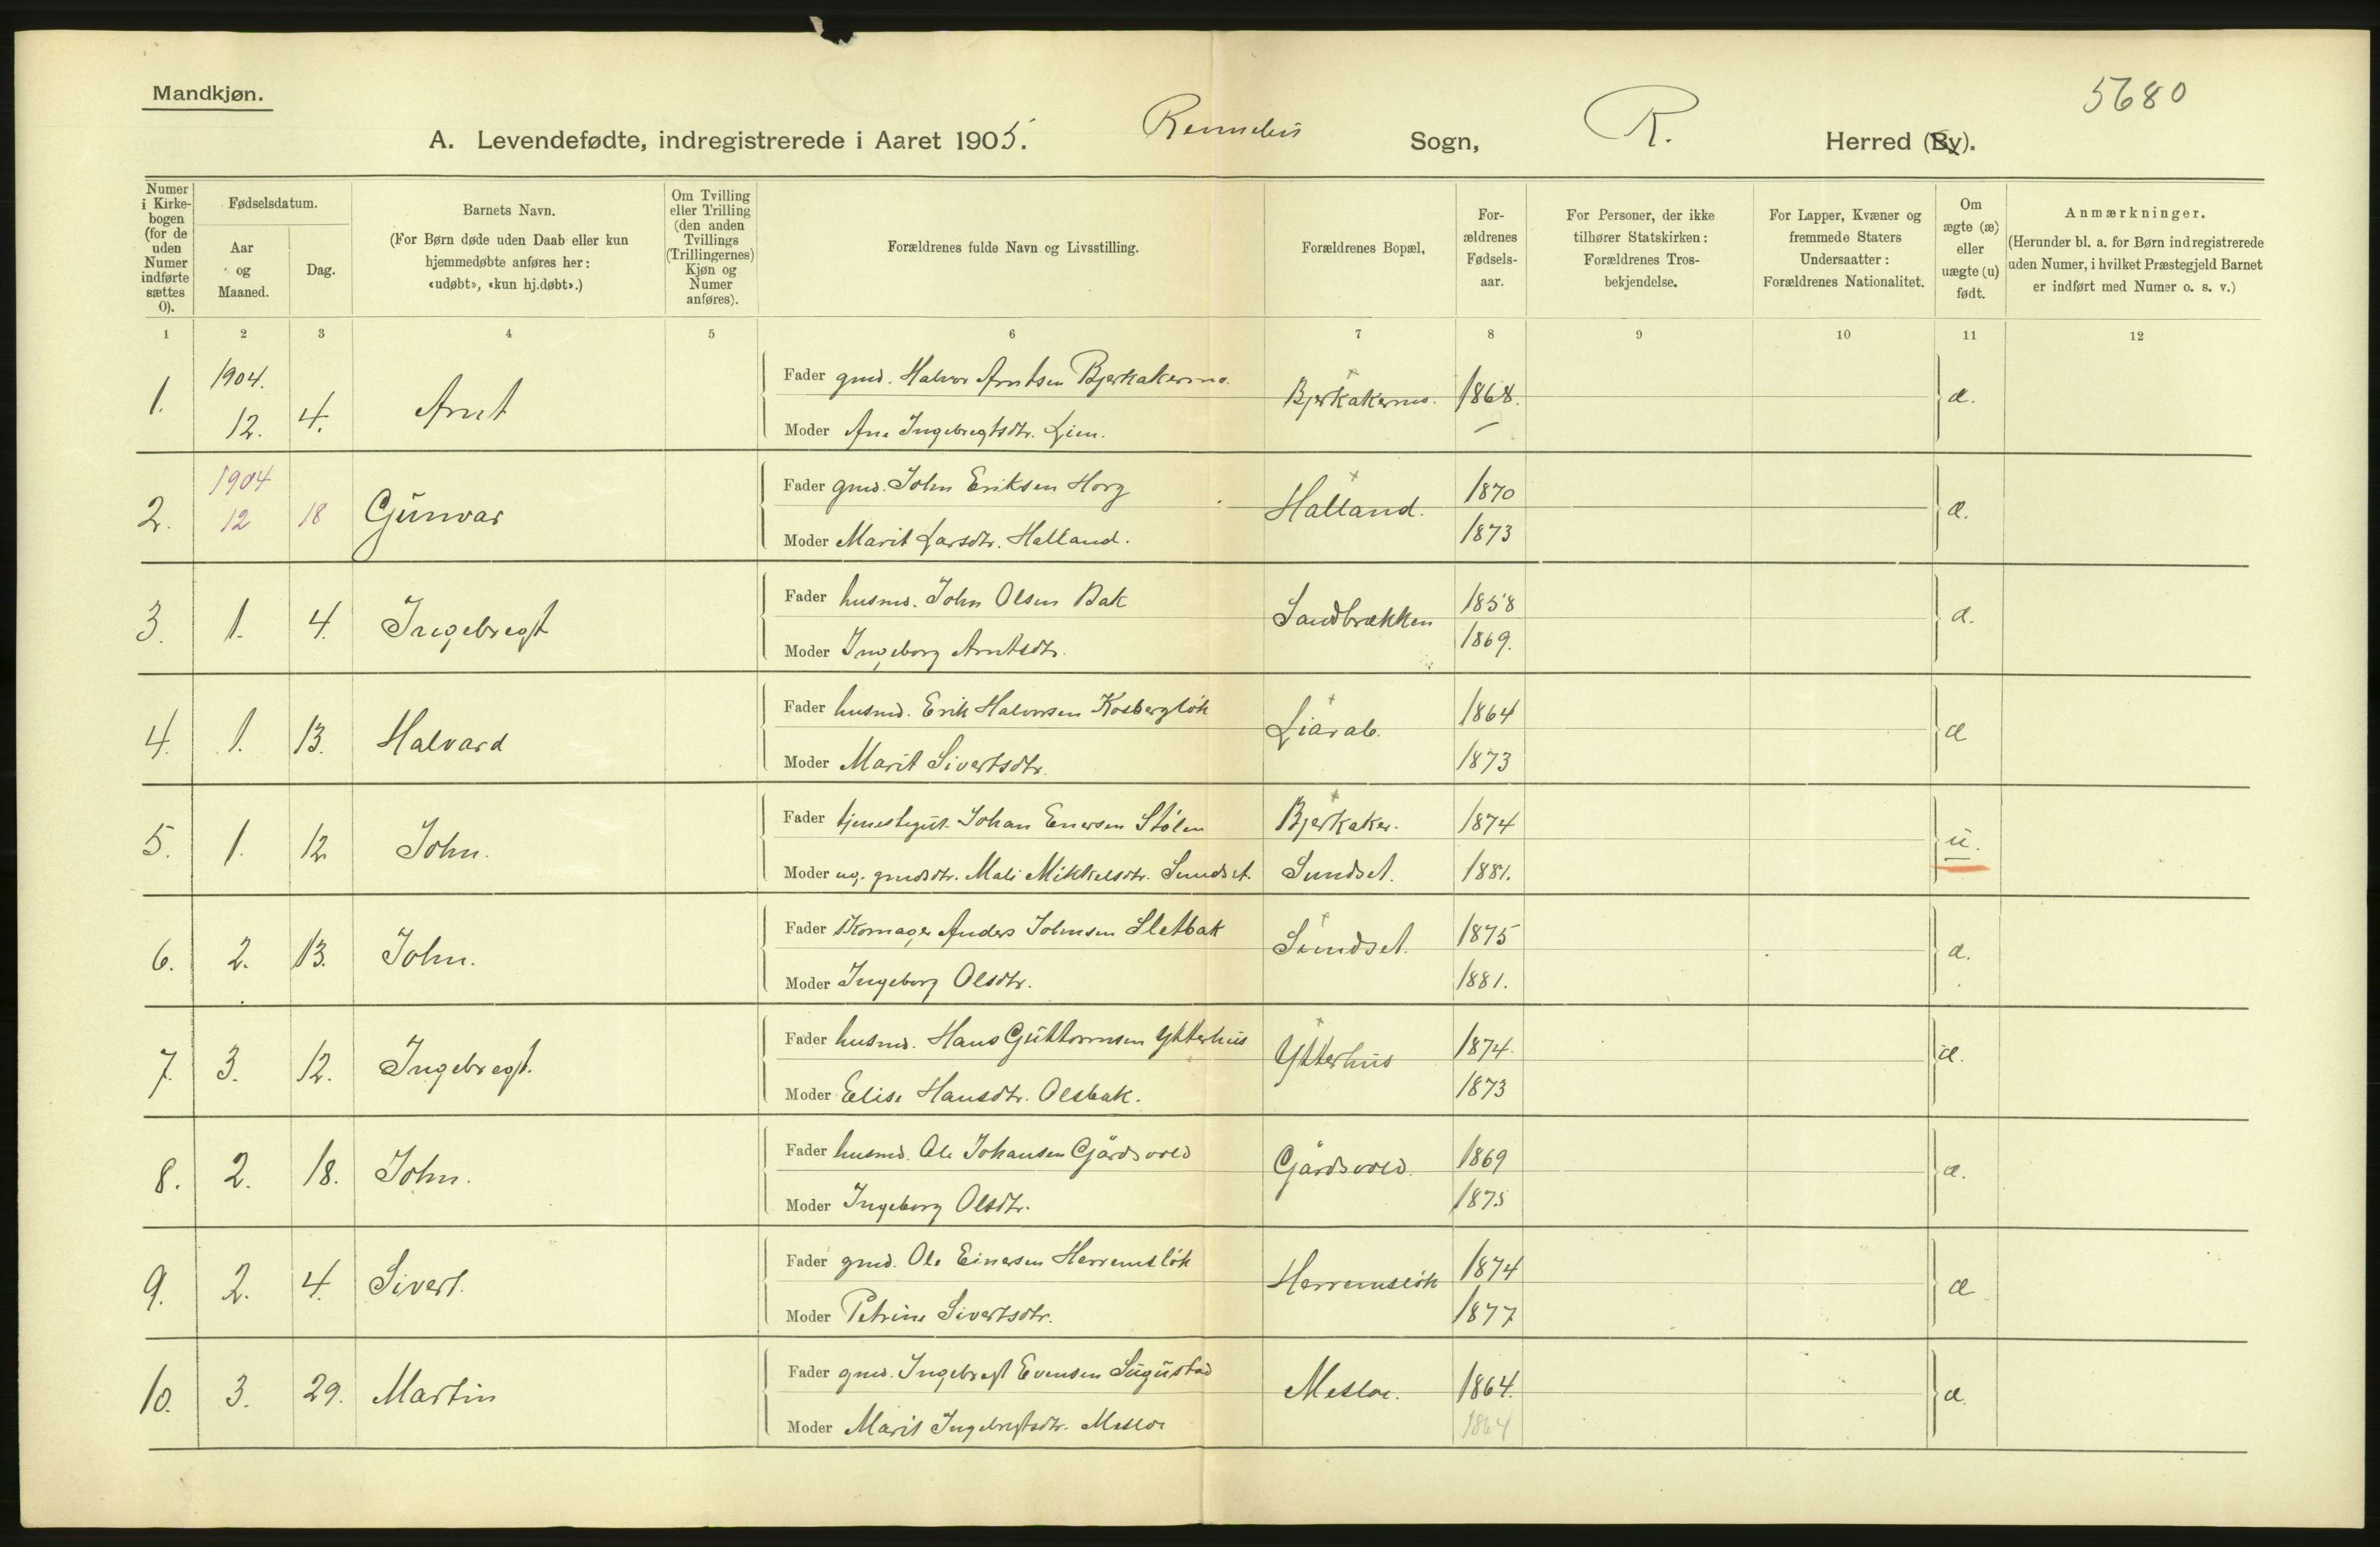 Mandkjøn.
5680
A. Levendefødte, indregistrerede i Aaret 1905. Rennebu Sogn, R. Herred (By).
Numer i Kirke-bogen (for de uden Numer indførte sættes 0).
Fødselsdatum.
Aar og Maaned.
Dag.
Barnets Navn.
(For Børn døde uden Daab eller kun hjemmedøbte anføres her: «udøbt», «kun hj.døbt».)
Om Tvilling eller Trilling (den anden Tvillings (Trillingernes) Kjøn og Numer anføres).
Forældrenes fulde Navn og Livsstilling.
Forældrenes Bopæl,
For-ældrenes Fødsels-aar.
For Personer, der ikke tilhører Statskirken: Forældrenes Tros-bekjendelse.
For Lapper, Kvæner og fremmede Staters Undersaatter: Forældrenes Nationalitet.
Om ægte (æ) eller uægte (u) født.
Anmærkninger.
(Herunder bl. a. for Børn indregistrerede uden Numer, i hvilket Præstegjeld Barnet er indført med Numer o. s. v.)
1 2 3 4 5 6 7 8 9 10 11 12
1. 1904. 12. 4. Arnt Fader gmd. Halvor Arntsen Bjerkakermo. Bjerkakermo. 1868. æ.
Moder Ane Ingebregtsdtr. Lien. –
2. 1904 12 18 Gunvar Fader gmd. John Eriksen Horg Halland. 1870 æ.
Moder Marit Larsdtr. Halland. 1873
3. 1. 4. Ingebregt Fader husmd. John Olsen Bak Sandbrækken 1858 æ.
Moder Ingeborg Arntsdtr. 1869.
4. 1. 13. Halvard Fader husmd. Erik Halvorsen Kosbergløk 1864 æ
Moder Marit Sivertsdtr. 1873
5. 1. 12 John. Fader tjenestegut Johan Enersen Stølen Bjerkaker. 1874 u.
Moder ug. gmdsdtr. Mali Mikkelsdtr. Sundset. Sundset. 1881.
6. 2. 13. John. Fader Skomager Anders Johnsen Sletbak Sundset. 1875 æ.
Moder Ingeborg Olsdtr. 1881.
7. 3. 12. Ingebregt. Fader husmd. Hans Guttormsen Ytterhus Ytterhus 1874. æ.
Moder Elise Hansdtr. Olsbak. 1873
8. 2. 18. John. Fader husmd. Ole Johansen Gårdsvold Gårdsvold. 1869 æ.
Moder Ingeborg Olsdtr. 1875
9. 2. 4. Sivert. Fader gmd. Ole Einersen Herremsløk Herremsløk 1874 æ
Moder Petrine Sivertsdtr. 1877
10. 3. 29. Martin Fader gmd. Ingebregt Evensen Sugustad Mesloe. 1864. æ.
Moder Marit Ingebregtsdtr. Mesloe 1864